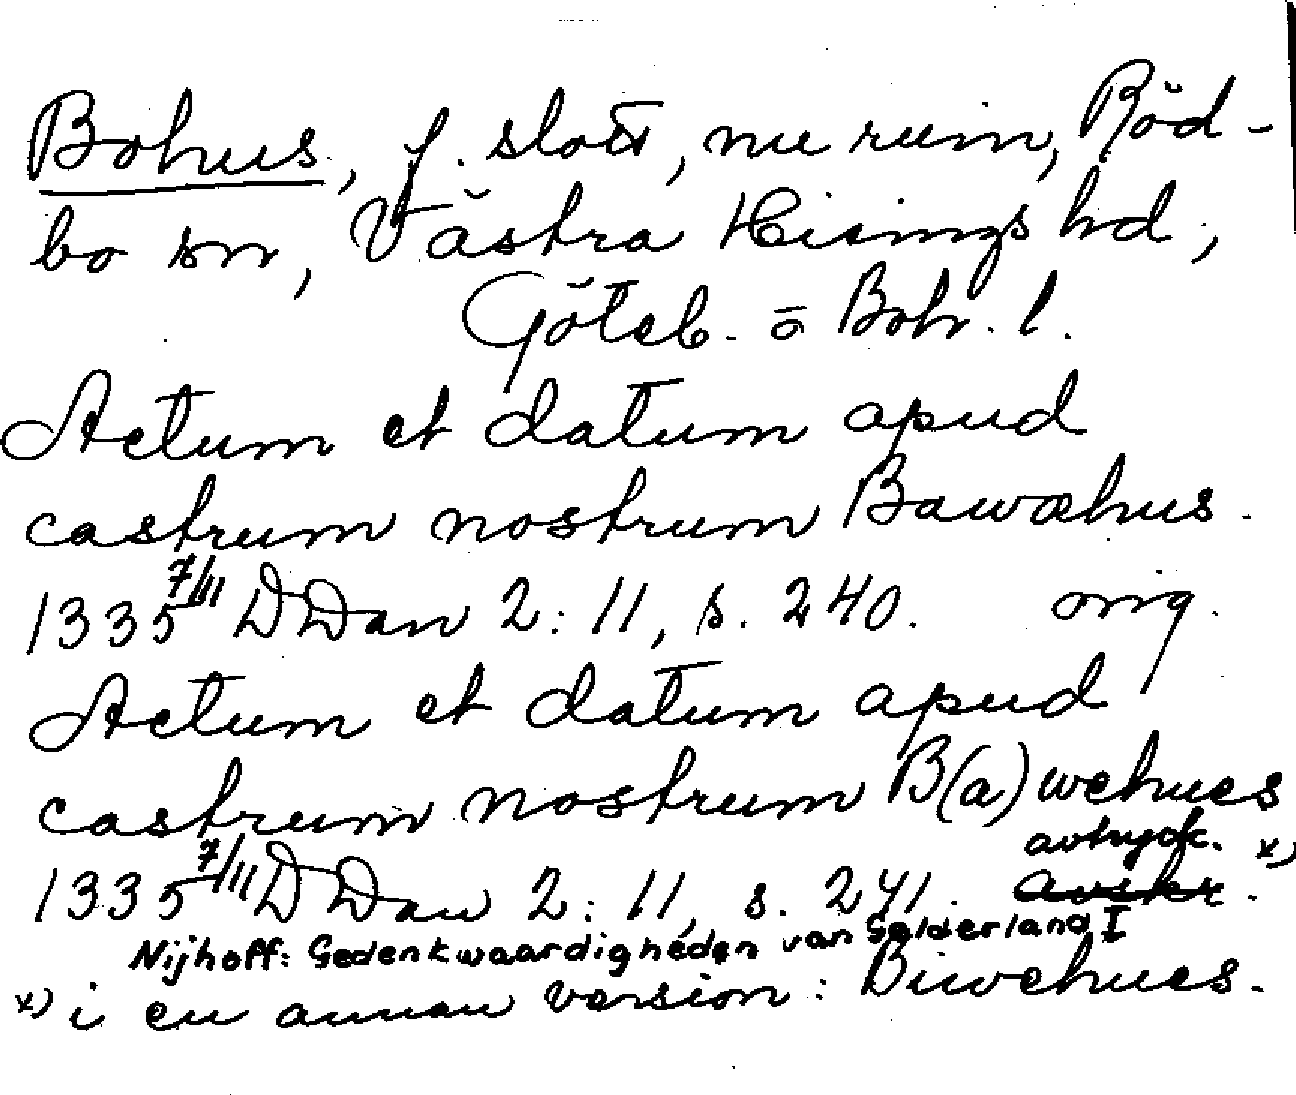 Bohus, f. slott, nu ruin, Röd-
bo sn, Västra Hisings hd,
Göteb. o Boh. l.
Actum et datum apud
castrum nostrum Bawæhus.
1335 7/III DDan 2: 11, s. 240. orig.
Actum et datum apud
castrum nostrum B(a)wehues
avtryck. x)
1335 7/III DDan 2: 11, s. 241.
Nijhoff: Gedenkwaardigheden van Gelderland I
x) i en annan version: Biuwehues.